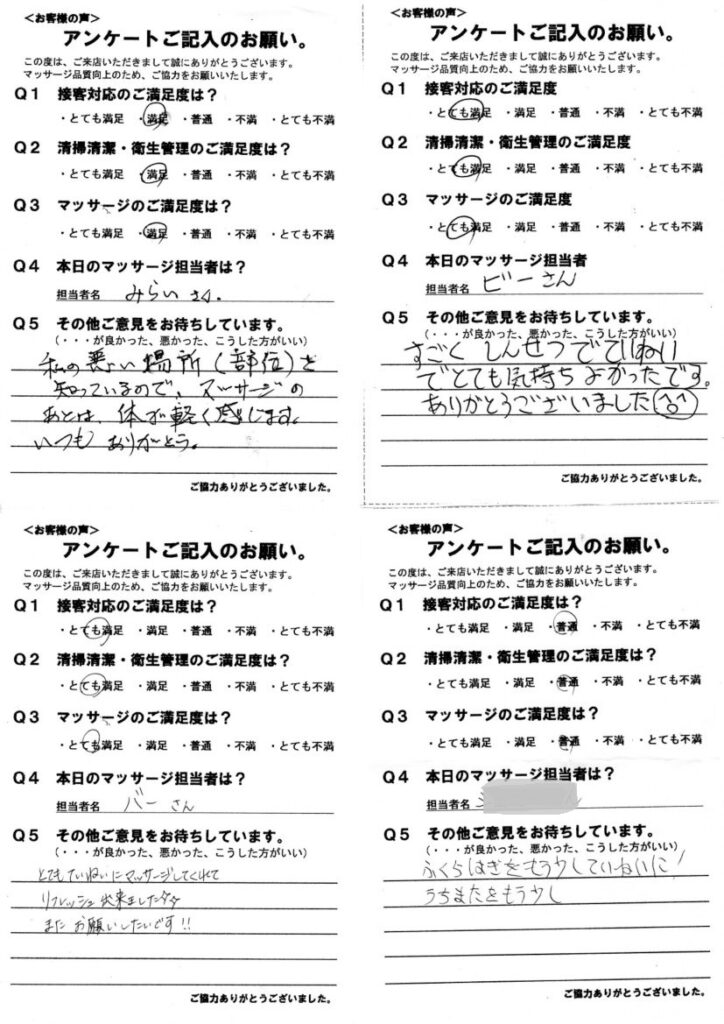 <お客様の声>
アンケートご記入のお願い。
この度は、ご来店いただきまして誠にありがとうございます。
マッサージ品質向上のため、ご協力をお願いいたします。
Q1 接客対応のご満足度は？
・とても満足 ・満足 ・普通 ・不満 ・とても不満
Q2 清掃清潔・衛生管理のご満足度は？
・とても満足 ・満足 ・普通 ・不満 ・とても不満
Q3 マッサージのご満足度は？
・とても満足 ・満足 ・普通 ・不満 ・とても不満
Q4 本日のマッサージ担当者は？
担当者名 みらいさん.
Q5 その他ご意見をお待ちしています。
（・・・が良かった、悪かった、こうした方がいい）
私の悪い場所（部位）を
知っているので、マッサージの
あとは、体が軽く感じます。
いつもありがとう。
ご協力ありがとうございました。
<お客様の声>
アンケートご記入のお願い。
この度は、ご来店いただきまして誠にありがとうございます。
マッサージ品質向上のため、ご協力をお願いいたします。
Q1 接客対応のご満足度
・とても満足 ・満足 ・普通 ・不満 ・とても不満
Q2 清掃清潔・衛生管理のご満足度
・とても満足 ・満足 ・普通 ・不満 ・とても不満
Q3 マッサージのご満足度
・とても満足 ・満足 ・普通 ・不満 ・とても不満
Q4 本日のマッサージ担当者
担当者名 ビーさん
Q5 その他ご意見をお待ちしています。
（・・・が良かった、悪かった、こうした方がいい）
すごくしんせつでていねい
でとても気持ちよかったです。
ありがとうございました
ご協力ありがとうございました。
<お客様の声>
アンケートご記入のお願い。
この度は、ご来店いただきまして誠にありがとうございます。
マッサージ品質向上のため、ご協力をお願いいたします。
Q1 接客対応のご満足度は？
・とても満足 ・満足 ・普通 ・不満 ・とても不満
Q2 清掃清潔・衛生管理のご満足度は？
・とても満足 ・満足 ・普通 ・不満 ・とても不満
Q3 マッサージのご満足度は？
・とても満足 ・満足 ・普通 ・不満 ・とても不満
Q4 本日のマッサージ担当者は？
担当者名 バーさん
Q5 その他ご意見をお待ちしています。
（・・・が良かった、悪かった、こうした方がいい）
とてもていねいにマッサージしてくれて
リフレッシュ出来ました
また お願いしたいです!!
ご協力ありがとうございました。
<お客様の声>
アンケートご記入のお願い。
この度は、ご来店いただきまして誠にありがとうございます。
マッサージ品質向上のため、ご協力をお願いいたします。
Q1 接客対応のご満足度は？
・とても満足 ・満足 ・普通 ・不満 ・とても不満
Q2 清掃清潔・衛生管理のご満足度は？
・とても満足 ・満足 ・普通 ・不満 ・とても不満
Q3 マッサージのご満足度は？
・とても満足 ・満足 ・普通 ・不満 ・とても不満
Q4 本日のマッサージ担当者は？
担当者名
Q5 その他ご意見をお待ちしています。
（・・・が良かった、悪かった、こうした方がいい）
ふくらはぎをもう少していねいに！
うちまたをもう少し
ご協力ありがとうございました。